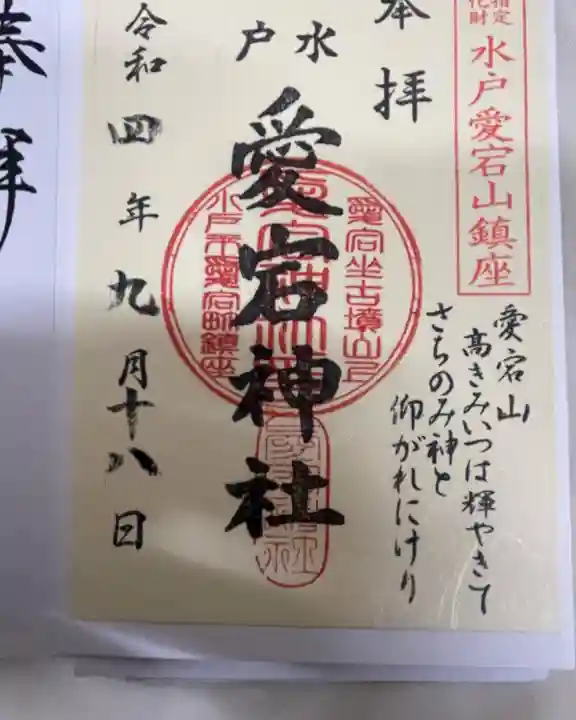 指定
化財
水戸愛宕山鎮座
奉拝
水戸
愛宕神社
愛宕坐古墳山上
水戸市愛宕町鎮座
愛宕山
高きみいつは輝やきて
さちのみ神と
仰がれにけり
令和四年九月十八日
奉拝